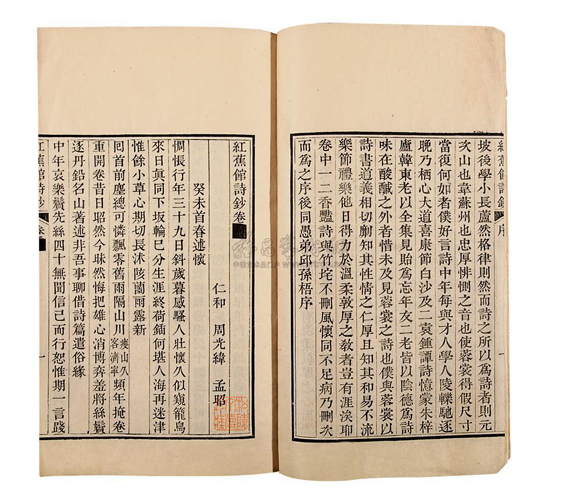 紅蕉館詩鈔 序
坡後學小長蘆然格律則然而詩之所以為詩者則元
次山也韋蘇州也忠厚悱惻之音也使蓉裳得假尺寸
當復何如者僕好言詩中年每與才人學人陵轢馳逐
晚乃栖心大道喜康節白沙及二袁鍾譚詩憶蒙朱梓
廬韓東老以全集見貽為忘年友二老皆以陰德為詩
味在酸醎之外者惜未及見蓉裳之詩也僕與蓉裳以
詩書道義相切劘知其性情之仁厚且知其和易不流
樂節禮樂他日得力於溫柔敦厚之教者豈有涯涘耶
卷中一二香豔詩與竹垞不刪風懷同不足病乃刪次
而為之序後同愚弟邱孫梧序
紅蕉館詩鈔卷
仁和 周光緯 孟昭
癸未首春述懷
惆悵行年三十九易斜歲暮感騷人壯懷久似窺籠鳥
來日真同下坂輪已分生涯終荷鍤何堪人海再迷津
惟餘小草心期切長沭陔蘭雨露新
回首前塵總可憐飄零舊雨隔山川 頻年掩卷
重開卷昔日昭然今昧然悔把雄心消博弈羞將絲鬢
逐丹鉛名山著述非吾事聊借詩篇遣俗緣
中年哀樂鬢先絲四十無聞信已而行恕惟期一言踐
紅蕉館詩鈔 卷 一